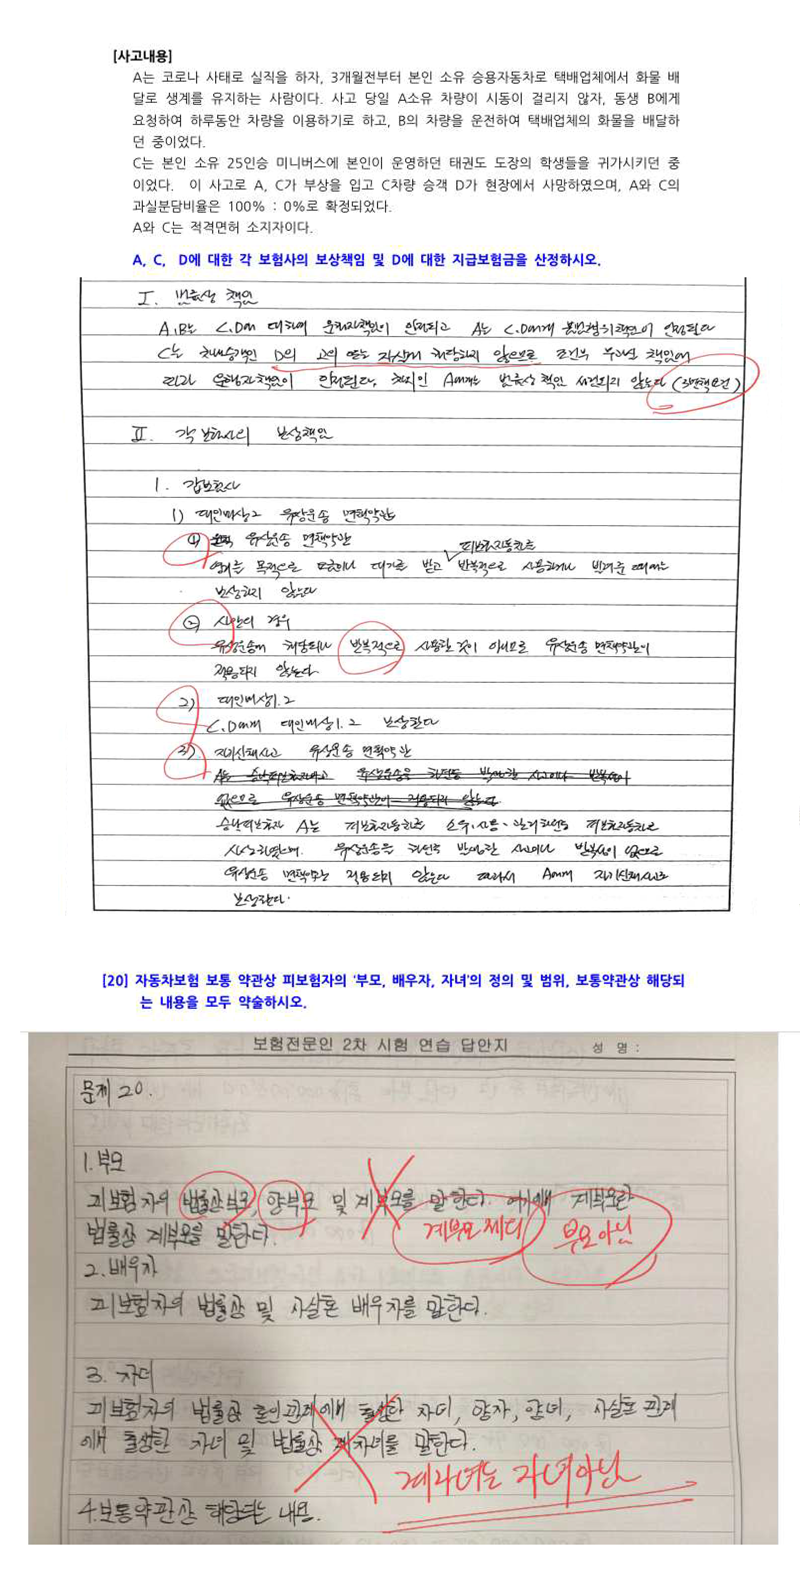 [사고내용]
A는 코로나 사태로 실직을 하자, 3개월전부터 본인 소유 승용자동차로 택배업체에서 화물 배
달로 생계를 유지하는 사람이다. 사고 당일 A소유 차량이 시동이 걸리지 않자, 동생 B에게
요청하여 하루동안 차량을 이용하기로 하고, B의 차량을 운전하여 택배업체의 화물을 배달하
던 중이었다.
C는 본인 소유 25인승 미니버스에 본인이 운영하던 태권도 도장의 학생들을 귀가시키던 중
이었다. 이 사고로 A, C가 부상을 입고 C차량 승객 D가 현장에서 사망하였으며, A와 C의
과실분담비율은 100% : 0%로 확정되었다.
A와 C는 적격면허 소지자이다.
A, C, D에 대한 각 보험사의 보상책임 및 D에 대한 지급보험금을 산정하시오.
I. 법률상 책임
A,B는 C.D에 대하여 운행자책임이 인정되고 A는 C.D에게 불법행위책임이 인정된다
C는 승객인 D의 고의 또는 자살에 해당하지 않으므로 조건부 무과실 책임에
따라 운행자책임이 인정된다. 타인 A에게는 법률상 책임 성립되지 않는다 (3면책요건)
II. 각 보험사의 보상책임
1. 갑보험사
1) 대인배상2 유상운송 면책약관
① 유상운송 면책약관
영리를 목적으로 요금이나 대가를 받고 피보험자동차를 반복적으로 사용하거나 빌려준 때에는
보상하지 않는다
② 사안의 경우
유상운송에 해당되나 반복적으로 사용한 것이 아니므로 유상운송 면책약관이
적용되지 않는다
2) 대인배상1.2
C.D에게 대인배상1.2 보상한다
3) 자기신체사고 유상운송 면책약관
승낙피보험자 A는 피보험자동차를 소유,사용,관리하던중 피보험자동차로
사상하였으며. 유상운송을 하던중 발생한 사고이나 반복성이 없으므로
유상운송 면책약관은 적용되지 않는다 따라서 A에게 자기신체사고를
보상한다.
[20] 자동차보험 보통 약관상 피보험자의 '부모, 배우자, 자녀'의 정의 및 범위, 보통약관상 해당되
는 내용을 모두 약술하시오.
보험전문인 2차 시험 연습 답안지 성 명 :
문제 20.
1. 부모
피보험자의 법률상 부모, 양부모 및 계부모를 말한다. 여기에 계부모란
법률상 계부모를 말한다. 계부모 제외 부모아님
2. 배우자
피보험자의 법률상 및 사실혼 배우자를 말한다.
3. 자녀
피보험자의 법률상 혼인관계에서 출생한 자녀, 양자, 양녀, 사실혼 관계
에서 출생한 자녀 및 법률상 계자녀를 말한다.
계자녀는 자녀아님
4. 보통약관상 해당되는 내용.